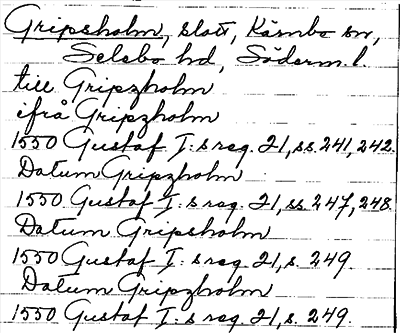 Gripsholm, slott, Kärnbo sn,
Selebo hd, Söderm. l.
till Gripzholm
ifrå Gripzholm
1550 Gustaf I:s reg. 21, ss. 241, 242.
Datum Gripzholm
1550 Gustaf I:s reg. 21, ss. 247, 248
Datum Gripsholm
1550 Gustaf I:s reg. 21, s. 249.
Datum Gripzholm
1550 Gustaf I:s reg. 21, s. 249.